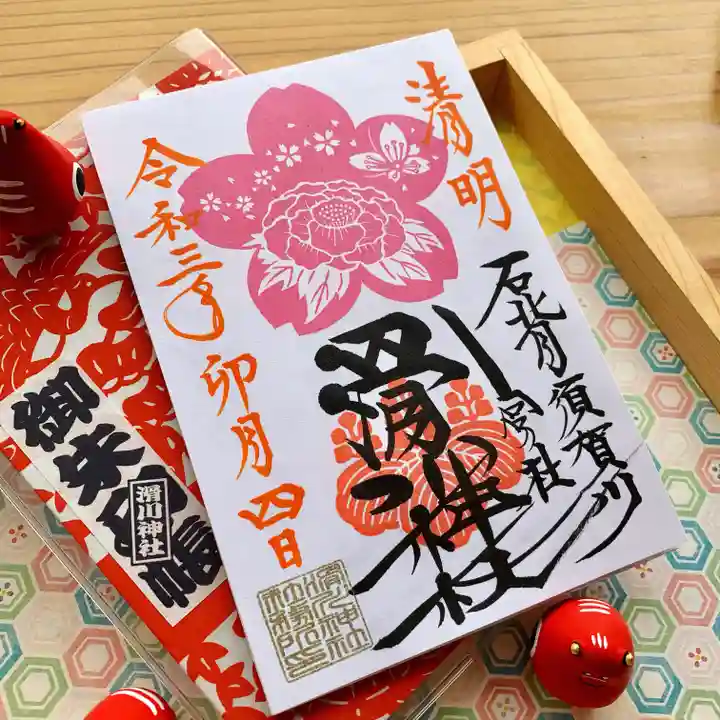 清明
石背 須賀川
滑川神社
令和三年 卯月 四日
御朱印帳
滑川神社